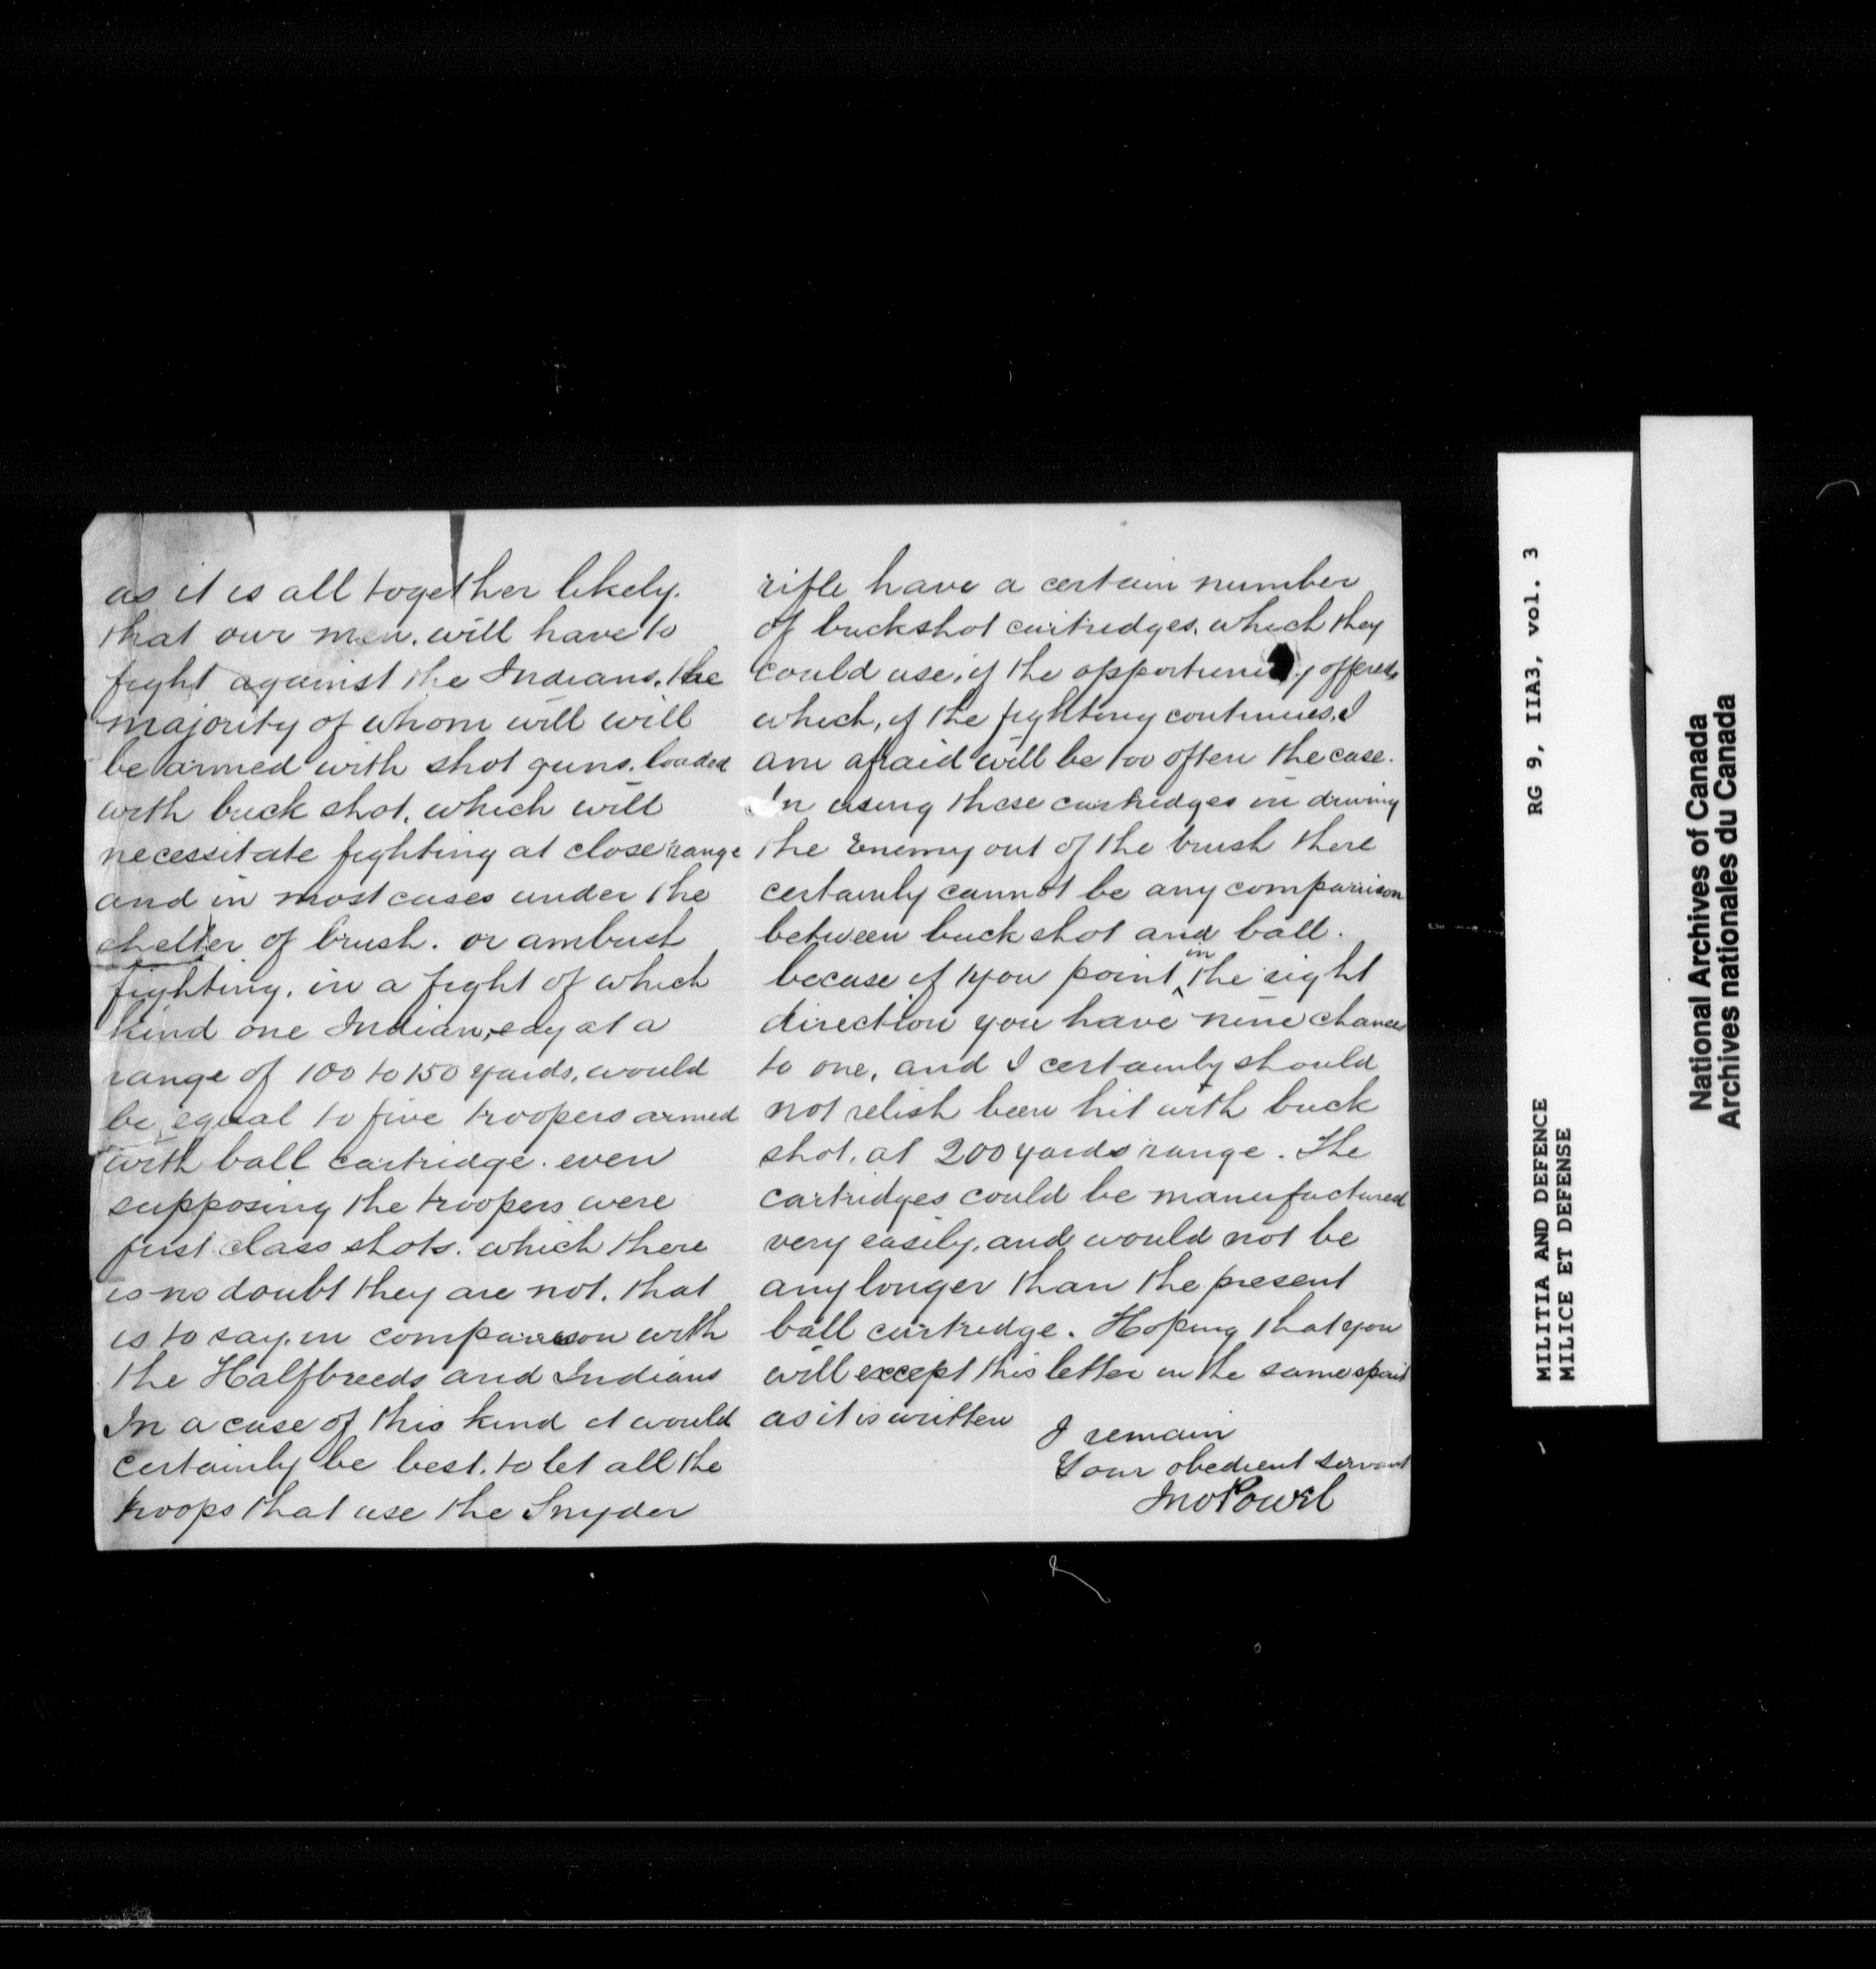 as it is all together likely.
that our men. will have to
fight against the Indians, the
majority of whom will will
be armed with shot guns. loaded
with buck shot. which will
necessitate fighting at close range
and in most cases under the
shelter of brush. or ambush
fighting, in a fight of which
kind one Indian, say at a
range of 100 to 150 yards, would
be equal to five troopers armed
with ball cartridge. even
supposing the troopers were
first class shots. which there
is no doubt they are not. that
is to say, in comparison with
the Halfbreeds and Indians
In a case of this kind it would
certainly be best. to let all the
troops that use the Snyder
rifle have a certain number
of buckshot cartridges, which they
could use, if the opportunity offered,
which, if the fighting continues, I
am afraid will be too often the case.
In using these cartridges in driving
the Enemy out of the brush there
certainly cannot be any comparrison
between buck shot and ball.
because if you point in the right
direction you have nine chances
to one, and I certainly should
not relish been hit with buck
shot, at 200 yards range. The
cartridges could be manufactured
very easily, and would not be
any longer than the present
ball cartridge. Hoping that you
will except this letter in the same spirit
as it is written
I remain
Your obedient servant
Jno Powel
RG 9, IIA3, vol. 3
MILITIA AND DEFENCE
MILICE ET DEFENSE
National Archives of Canada
Archives nationales du Canada